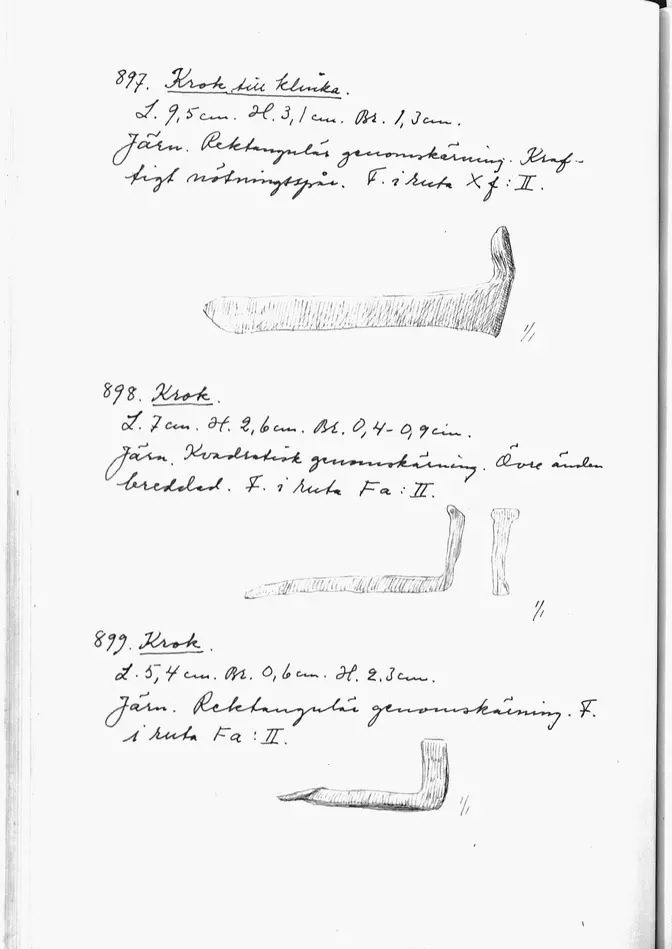 897. Krok till klinka.
L. 9,5 cm. H. 3,1 cm. Br. 1,3 cm.
Järn. Rektangulär genomskärning. Kraf-
tigt nötningsspår. F. i ruta Xf : II.
1/1
898. Krok.
L. 7 cm. H. 2,6 cm. Br. 0,4-0,9 cm.
Järn. Kvadratisk genomskärning. Övre änden
breddad. F. i ruta Fa : II.
1/1
899. Krok.
L. 5,4 cm. Br. 0,6 cm. H. 2,3 cm.
Järn. Rektangulär genomskärning. F.
i ruta Fa : II.
1/1